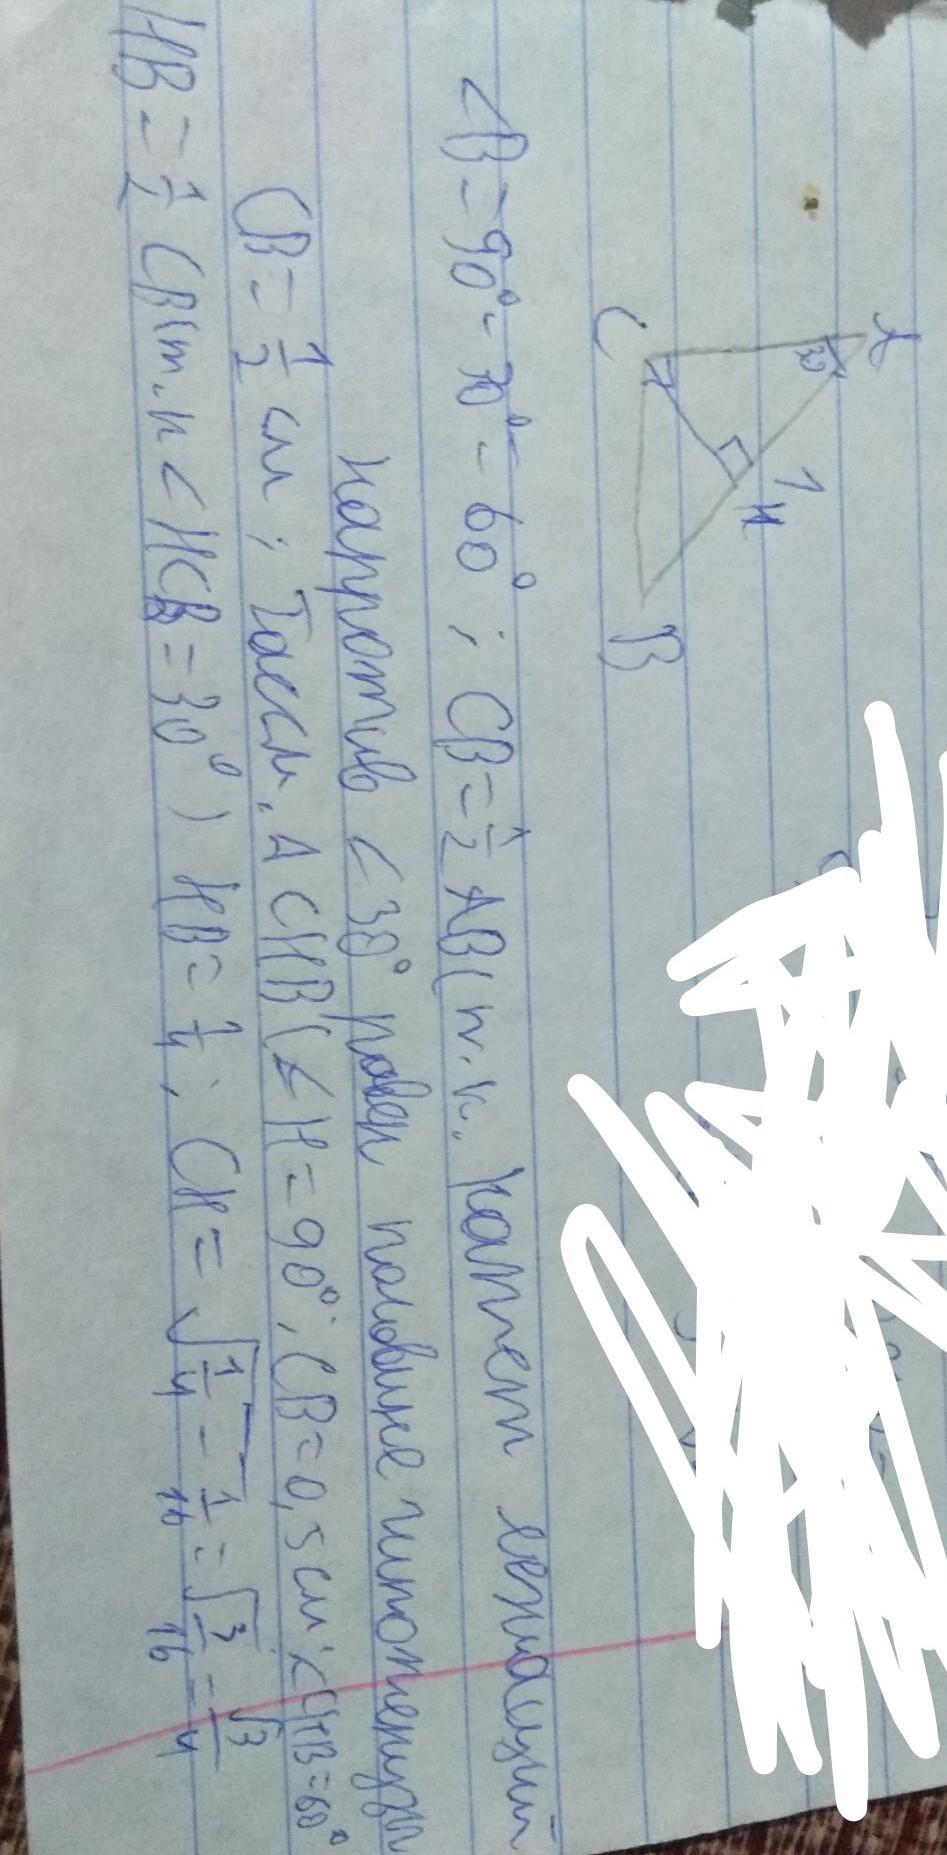 A
30
1
H
C
B
<B=90°-30°=60°; CB=1/2 AB(т.к. катет лежащий
напротив <30° равен половине гипотенузы
CB=1/2 см; Рассм. Δ CHB(<H=90°; CB=0,5 см; <CHB=60°
HB=1/2 CB(т.к <HCB=30°) HB=1/4; CH=√1/4-1/16=√3/16=√3/4